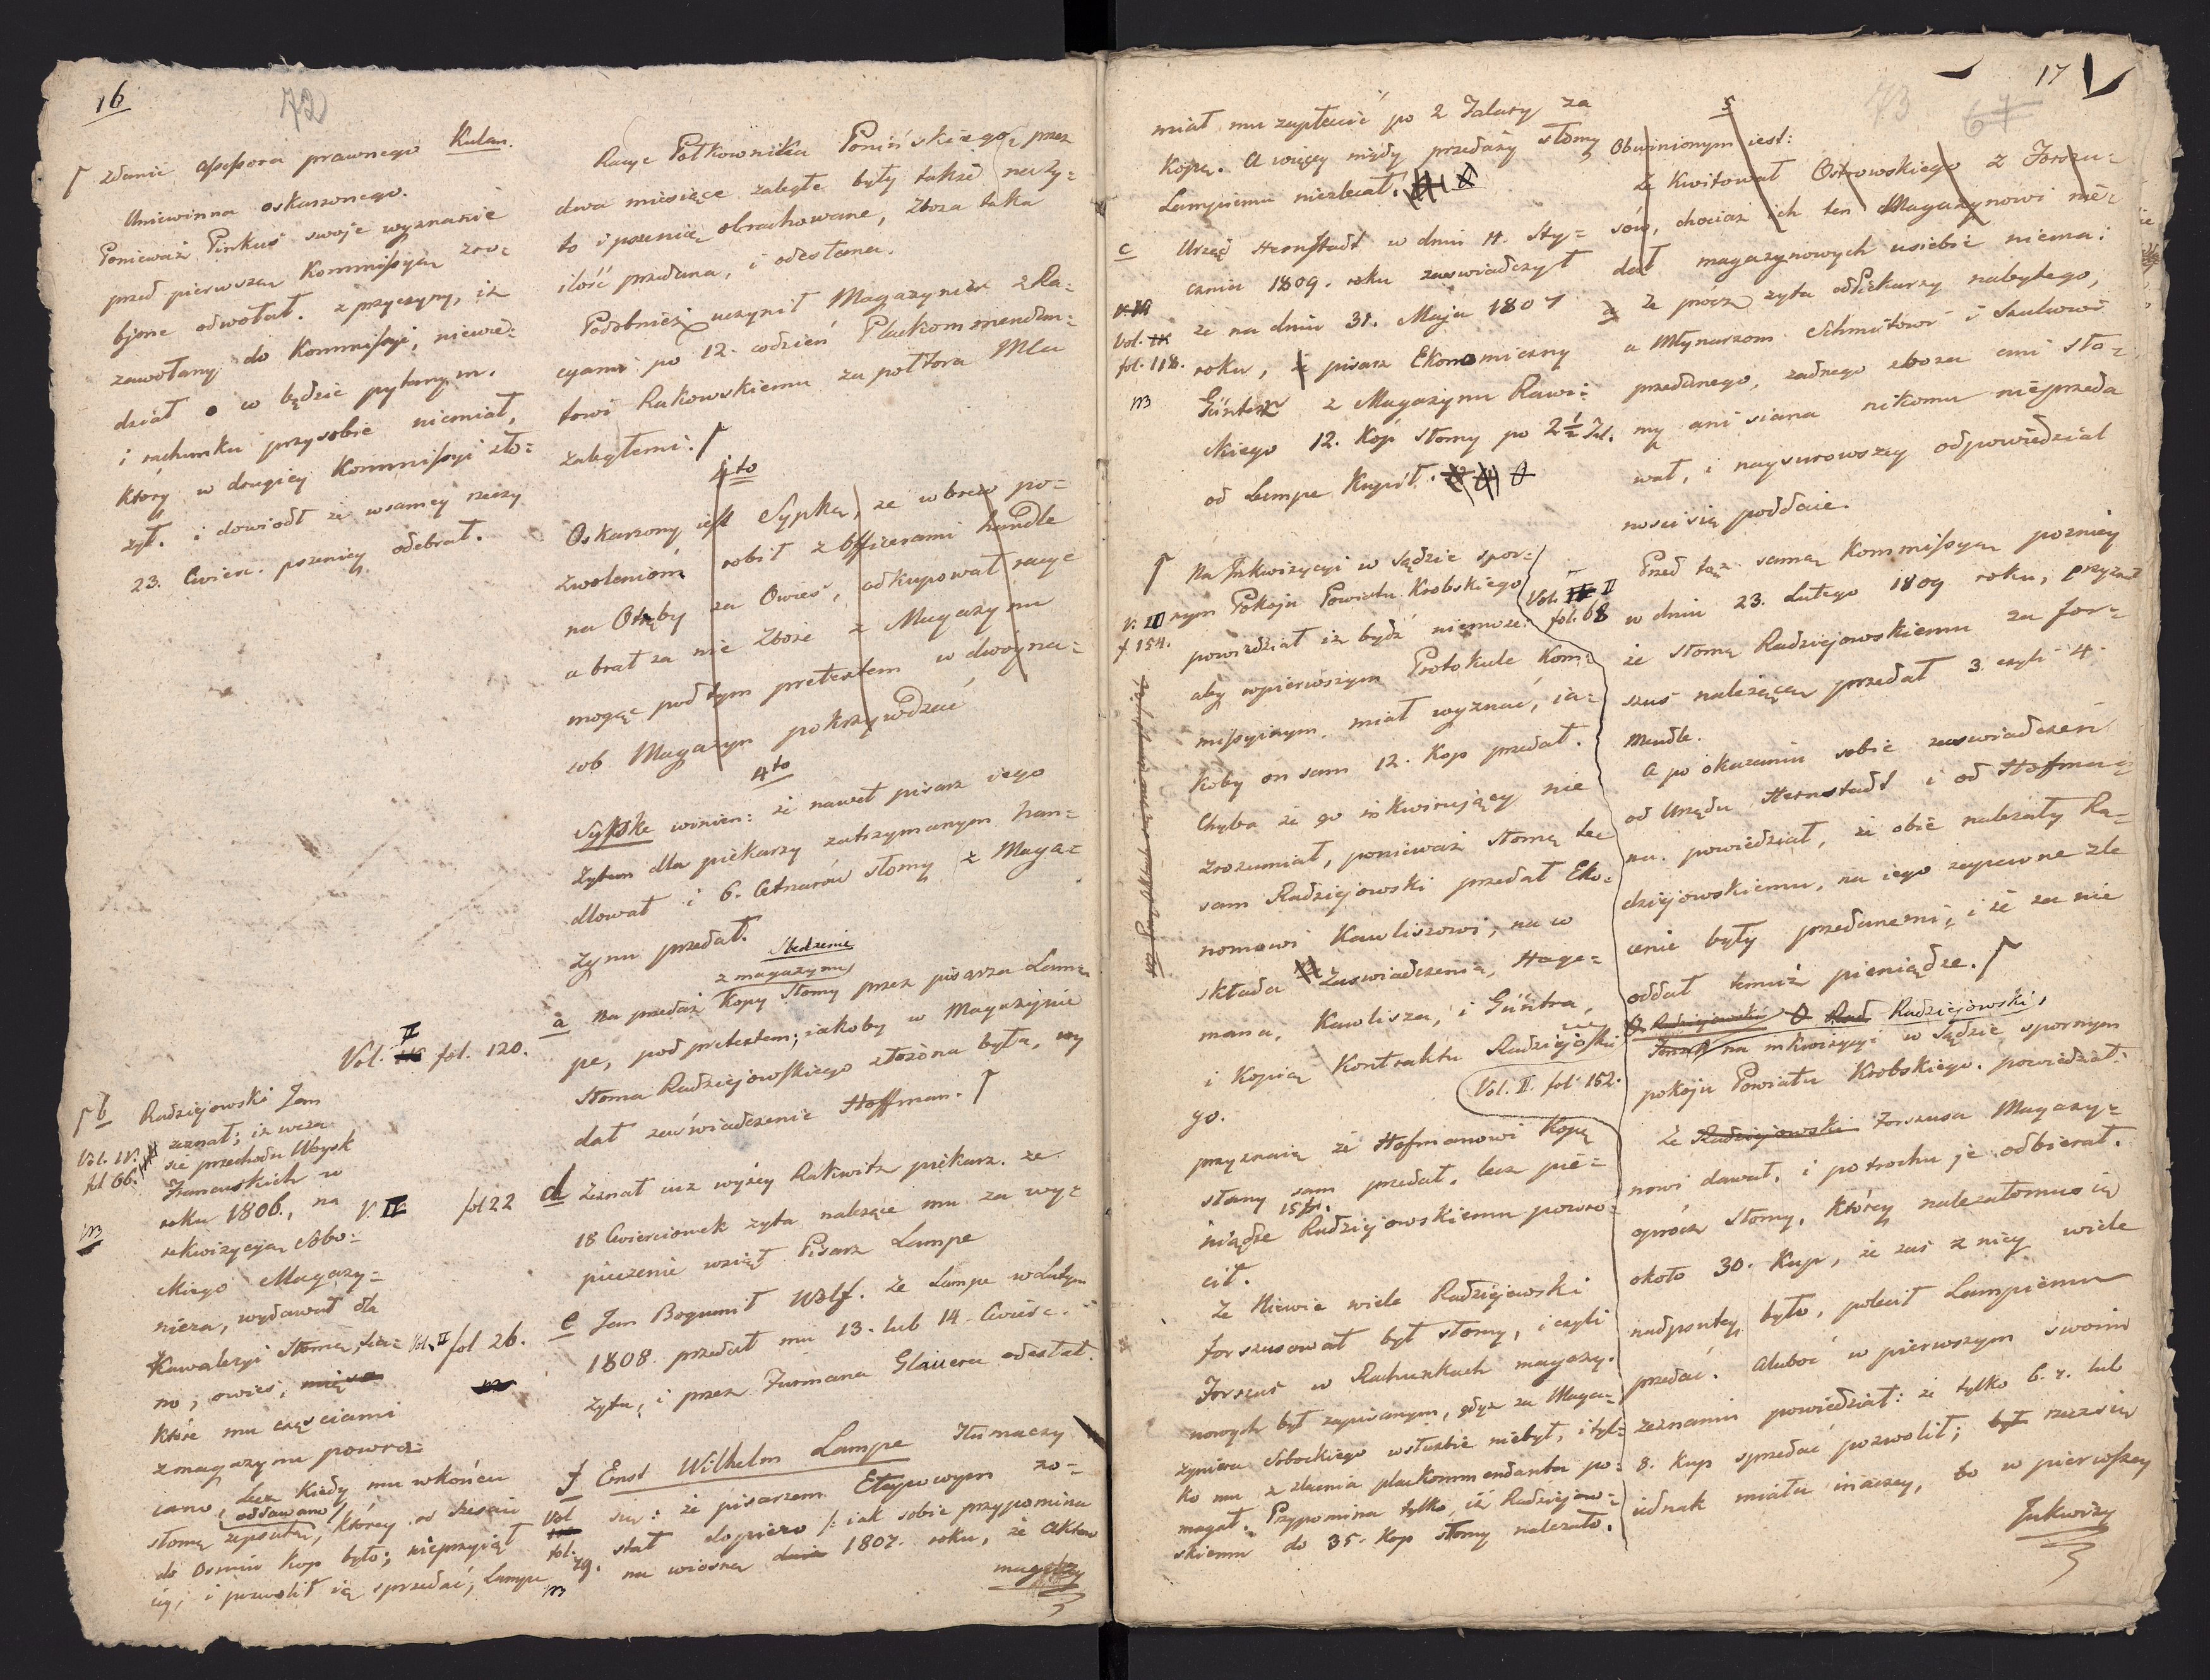 16
72
Zdanie assessora prawnego Kulan.
Uniewinna oskarzonego.
Ponieważ Pinkus swoje wyznanie
przed pierwszą Kommissyą zro=
bjone odwołał. z przyczyny, iż
zawołany do Kommissyi, niewie=
dział o co będzie pytanym.
i rachunku przysobie niemiał,
który w drugiey Kommissyi zło=
żył. i dowiodł że wsamey rzeczy
23. Cwierc. pszenicy odebrał.
Vol. II fol. 120.
b Radziejowski Jan
zeznał; iż wcza
sie przechodu Woysk
Francuskich w
roku 1806., na
rekwizycyą Sobo=
ckiego Magazy=
niera, wydawał dla
Kawaleryi słomę, sia=
no, owies,
które mu częsciami
z magazynu powra=
cano, lecz kiedy mu wkońcu
oddawano
słomę zepsutą, którey od sześciu
do osmiu kop było; nieprzyiął
iey; i pozwolił ią sprzedać, Lampe
Vol. IV.
fol. 66.
m
V. II fol 22
Vol. II fol 26.
Racye Połkownika Ponińskiego, przez
dwa miesiące zaległe były także na ży=
to i pszenicę obrachowane, zboża taka
ilość przedana, i odesłana.
Podobnież uczynił Magazynier z Ra=
cyami po 12. codzień Plackommendan=
towi Rakowskiemu za połtora Mca
zaległemi.
4to
Oskarzony jest Sypka, ze wbrew po=
zwoleniom robił z officerami handle
na Otręby za Owies, odkupował racye
a brał za nie Zboże z Magazynu
mogąc pod tym pretextem w dwojna=
sob Magazyn pokrzywdzać
4to
Sypke winien: że nawet pisarz jego
żytem dla piekarzy zatrzymanym han=
dlował i 6. Cetnarów słomy z Maga=
zynu przedał.
Sledzenie
z magazynu
a Na przedaż Kopy Słomy przez pisarza Lam=
pe, pod pretextem; iakoby w Magazynie
słoma Radziejowskiego złożona była, wy
dał zaświadczenie Hoffman.
d Zeznał iuz wyżey Rakwitz piekarz. że
18 Cwierciowek żyta należące mu za wy=
pieczenie wziął Pisarz Lampe
e Jan Bogumił Wolf. że Lampe w Lutym
1808. przedał mu 13. lub 14. Cwierc.
żyta, i przez Furmana Glauera odesłał.
f Ernst Wilhelm Lampe tłumaczy
się: że pisarzem Etapowym zo=
stał dopiero /: iak sobie przypomina
na wiosnę 1807. roku, że
Vol
fol. 79.
m
17
73
67
miał mu zapłacić po 2 Talary za
Kopę. A więcey nigdy przedaży słomy
Lampiemu niezlecał.
c Urząd Hernstadt w dniu 11. Sty=
czniu 1809. roku zaswiadczył
że na dniu 31. Maja 1807
roku, pisarz Ekonomiczny
Günter z Magazynu Rawi=
ckiego 12. Kop słomy po 2 1/2 Tal.
od Lampe Kupił.
Vol.
fol. 118.
m
Na Inkwizycyi w Sądzie spor=
nym Pokoju Powiatu Krobskiego
powiedział iż bydź niemoże
aby wpierwszym Protokule Kom=
missyinym, miał wyznać, ia=
koby on sam 12. Kop przedał.
Chyba że go inkwirujący nie
zrozumiał, ponieważ słomę tę
sam Radziejowski przedał Eko=
nomowi Kawliszowi, na co
składa Zaswiadczenia, Hage=
mana, Kawlisza, i Güntra,
i Kopią Kontraktu Radziejowski
go.
V. III
f 154.
Vol. II. fol 152.
przyznaię że Hofmanowi Kopę
słomy sam przedał, lecz pie=
niądze 15 Radziejowskiemu powro=
cił.
Że Niewie wiele Radziejowski
forszusował był słomy, i czyli
Forszus w Rachunkach magazy=
nowych był zapisanym, gdyż za Maga=
zyniera Sobockiego wsłużbie niebył, i tyl=
ko mu z zlecenia plackommendanta po=
magał. Przypomina tylko, iż Radziejow=
skiemu do 35. Kop słomy należało.
5
Obwinionym iest:
Że Kwitował Ostrowskiego z Forszu=
sów, chociaż ich ten Magazynowi nie=
dał magazynowych usiebie niema:
że prócz żyta od Piekarzy nabytego,
a Młynarzom Schmitowi i Szulcowi
przedanego, żadnego zboża ani sło=
my ani siana nikomu nieprzeda
wał, i naysurowszey odpowiedzial
nosci się poddaie.
Przed tąż samą Kommissyą pozniey
w dniu 23. Lutego 1809 roku, przyznał
że słomę Radziejowskiemu za for=
szus należącą przedał 3. czyli 4.
Mendle.
A po okazaniu sobie zaswiadczeń
od Urzędu Hernstadt i od Hofma=
na. powiedział, że obie należały Ra=
dziejowskiemu, na iego zapewne zle
cenie były przedanemi, i że za nie
oddał temuż pieniądze.
Vol. II
fol. 68
Radziejowski,
na inkwizycyi w Sądzie spornym
pokoju Powiatu Krobskiego. powiedział:
Że Forszusa Magazy=
nowi dawał, i potrochu je odbierał.
oprócz słomy, którey należałomusię
około 30. Kup, że zaś z niey wiele
nadpsutey było, polecił Lampiemu
przedać. Aluboć w pierwszym swoim
zeznaniu powiedział: że tylko 6. 7. lub
8. Kup sprzedać pozwolił; rzecz się
iednak miała inaczey, bo w pierwszey
Inkwizy